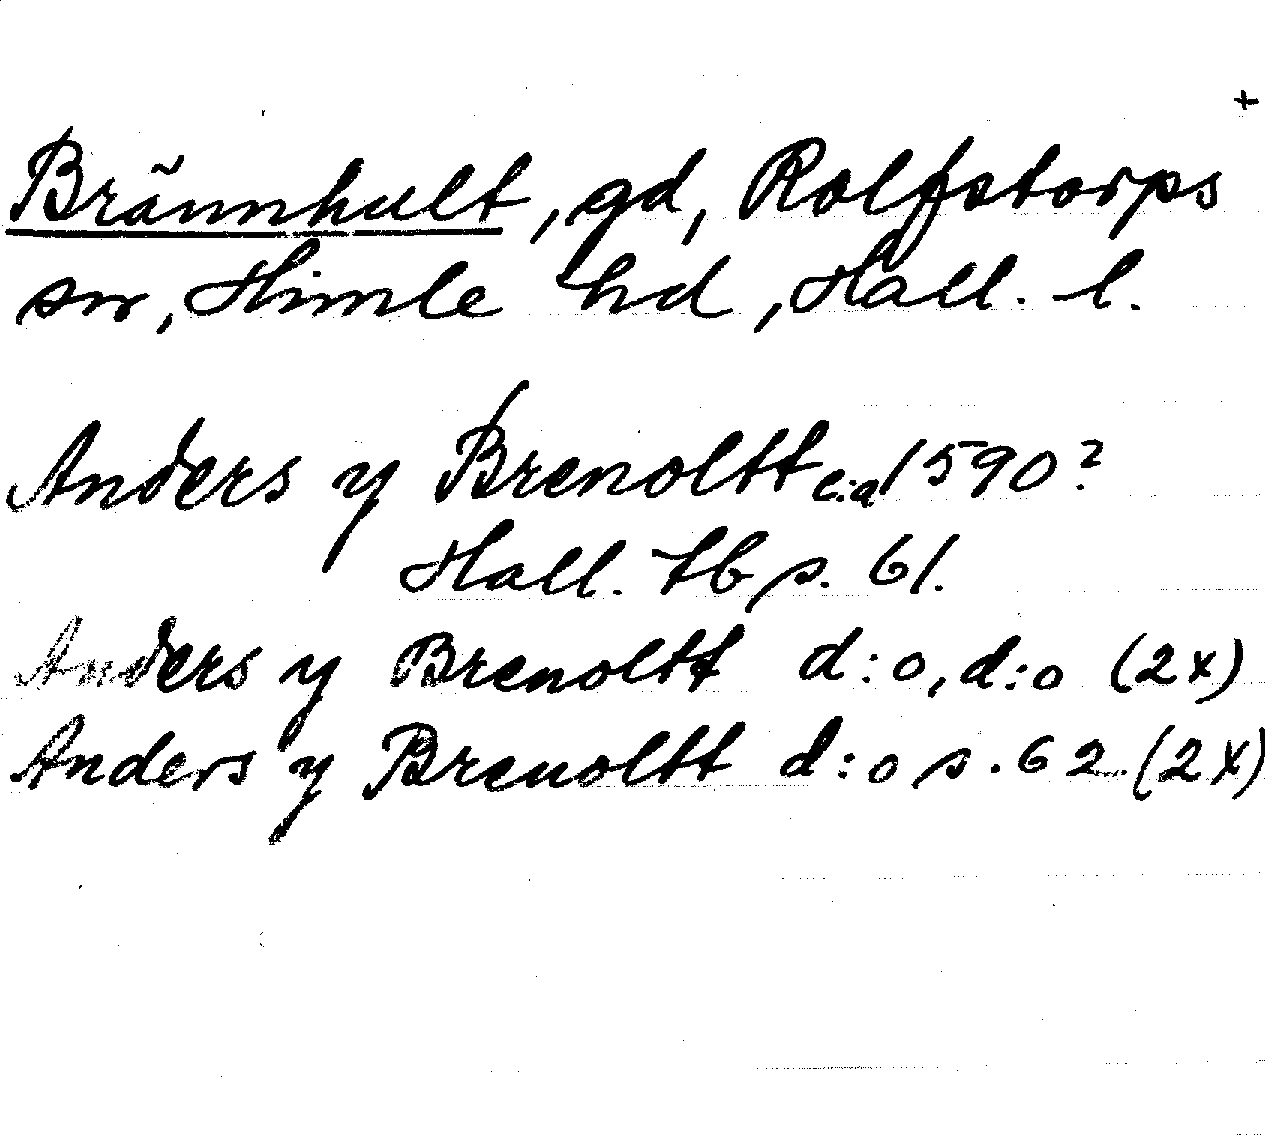 +
Brännhult, gd, Rolfstorps
sn, Himle hd, Hall. l.
Anders y Brenoltt c:a 1590?
Hall. tb s. 61.
Anders y Brenoltt d:o, d:o (2x)
Anders y Brenoltt d:o s. 62 (2x)